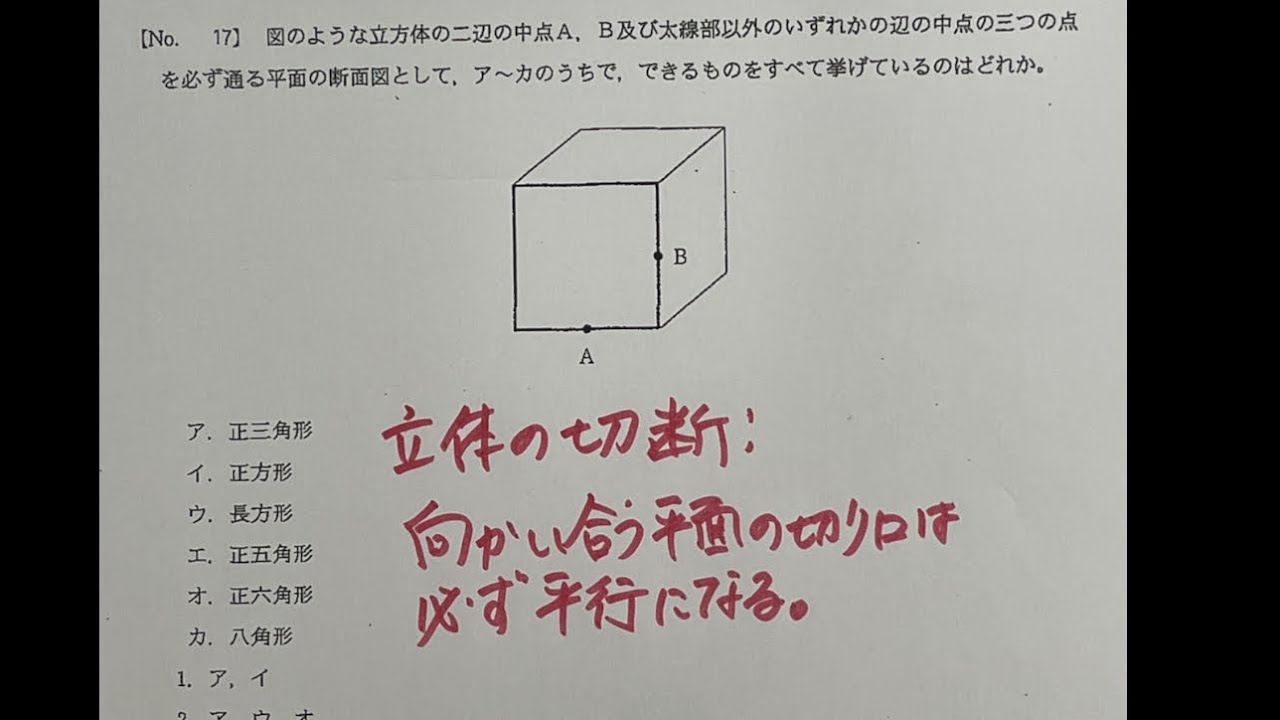 【No. 17】 図のような立方体の二辺の中点A，B及び太線部以外のいずれかの辺の中点の三つの点
を必ず通る平面の断面図として，ア～カのうちで，できるものをすべて挙げているのはどれか。
B
A
ア．正三角形
イ．正方形
ウ．長方形
エ．正五角形
オ．正六角形
カ．八角形
立体の切断：
向かい合う平面の切り口は
必ず平行になる。
1．ア，イ
2．ア，ウ，オ